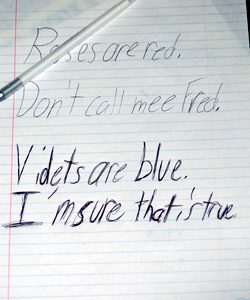 Roses are red.
Don't call mee Fred.
Videts are blue.
I'm sure that's true.